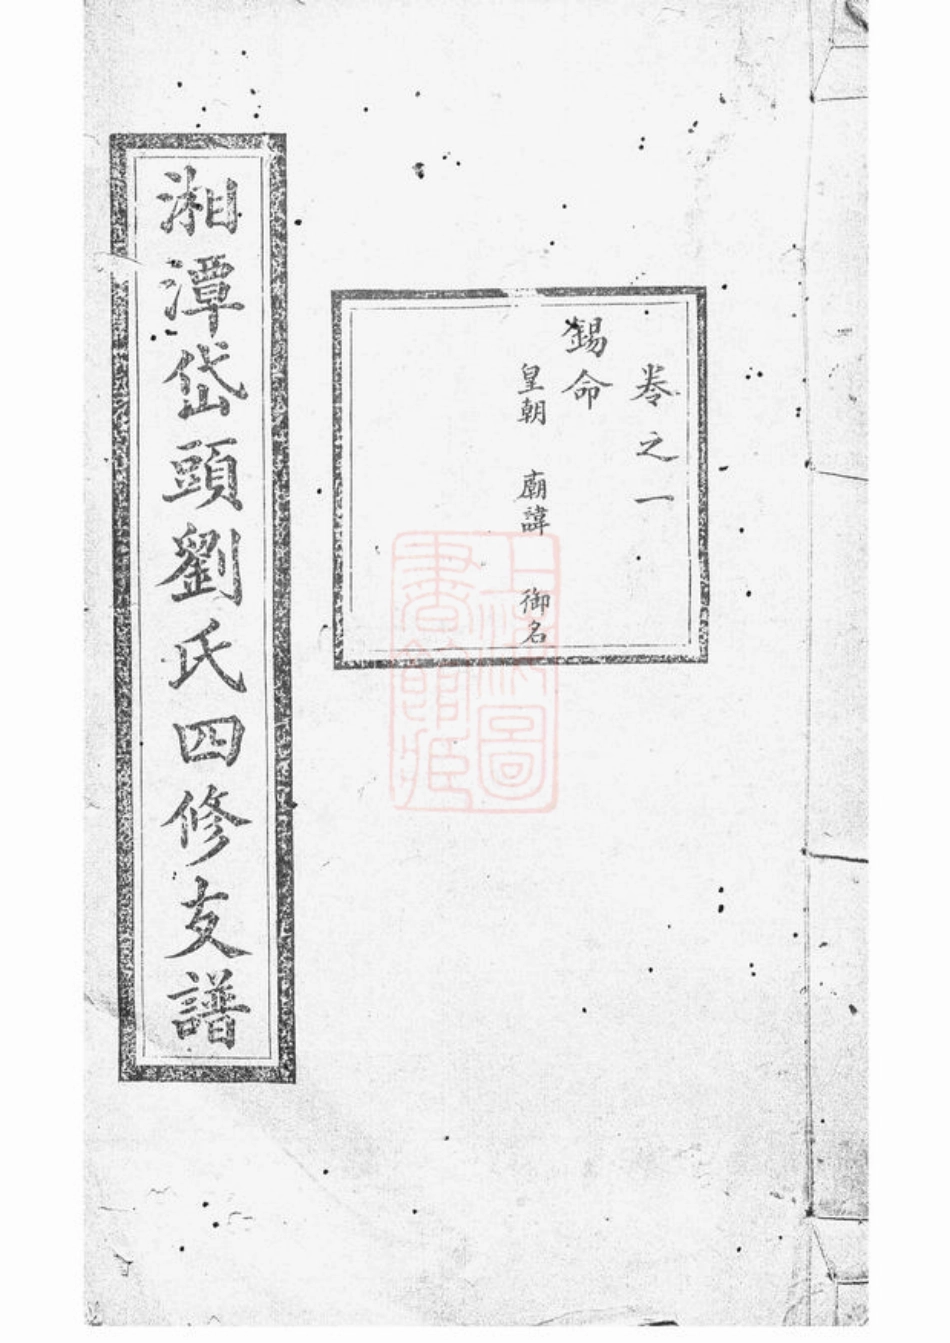 湘潭岱頭劉氏四修支譜
卷之一
錫命
皇朝　廟諱　御名
上海圖
書館藏